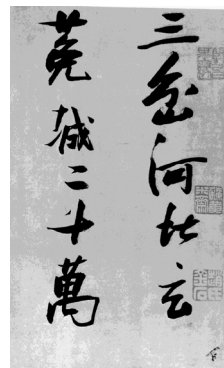 三岔河北玄
菟城二十萬